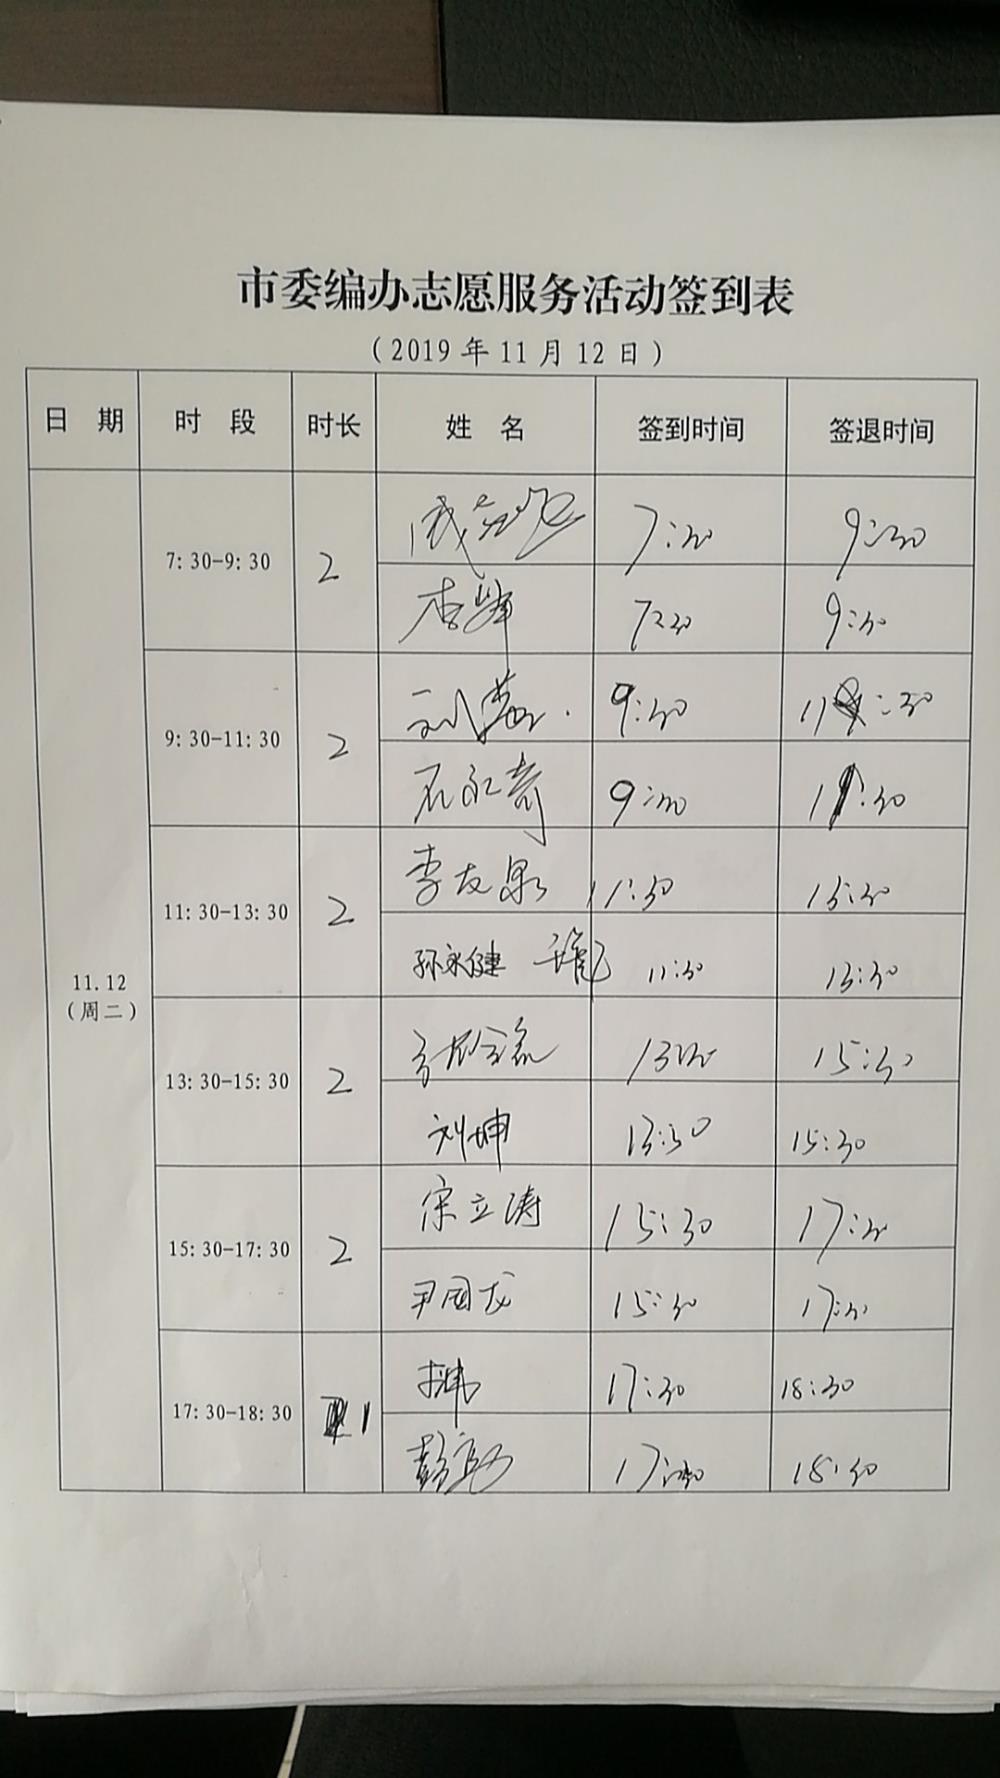 市委编办志愿服务活动签到表
(2019年11月12日)
日 期 时 段 时长 姓 名 签到时间 签退时间
11.12
(周二)
7:30-9:30 2 7:30 9:30
7:30 9:30
9:30-11:30 2 9:30 11:30
石永奇 9:30 11:30
11:30-13:30 2 李友泉 11:30 13:30
孙永健 11:30 13:30
13:30-15:30 2 13:30 15:30
刘坤 13:30 15:30
15:30-17:30 2 宋立涛 15:30 17:30
尹国龙 15:30 17:30
17:30-18:30 1 17:30 18:30
17:30 18:30